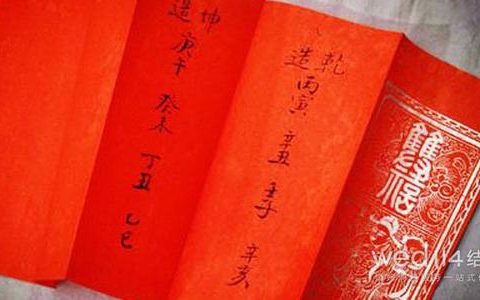 乾造 丙寅 辛丑 壬子 辛亥
坤造 庚午 癸未 丁丑 乙巳
wed114结
一站式